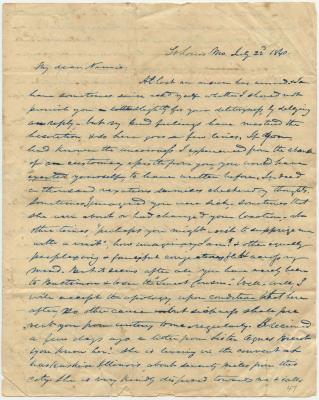 St Louis Mo. July 22d 1840.
My dear Nannie.
At last an answer has arrived. I
have sometimes since asked myself whether I should not
punish you a little for your delay, by delaying
a reply, but my kind feelings have mastered the
hesitation, & so here goes a few lines. If you
had known the uneasiness I experienced from the
of an customary epistle from you, you would have
exerted yourself to have written before.
a thousand vexatious surmises checkered my thoughts,
Sometimes, I imagined you were sick, sometimes that
she were about or had changed your location, at
other times, "perhaps you might wish to surprise me
with a visit", how imaginary I am! & other equally
perplexing & fanciful my
mind. But it seems after all, you have merely been
to Baltimore & lost the "Sweet Cousin". Well, well, I
will accept the apology, upon condition that here
after no other cause but sickness shall pre
vent you from writing home regularly. I received
a few days ago a letter from Sister Agnes
(you know her). She is living in the convent at
Kaskaskia Illinois about seventy miles from this
city. She is very kindly disposed towards me & calls